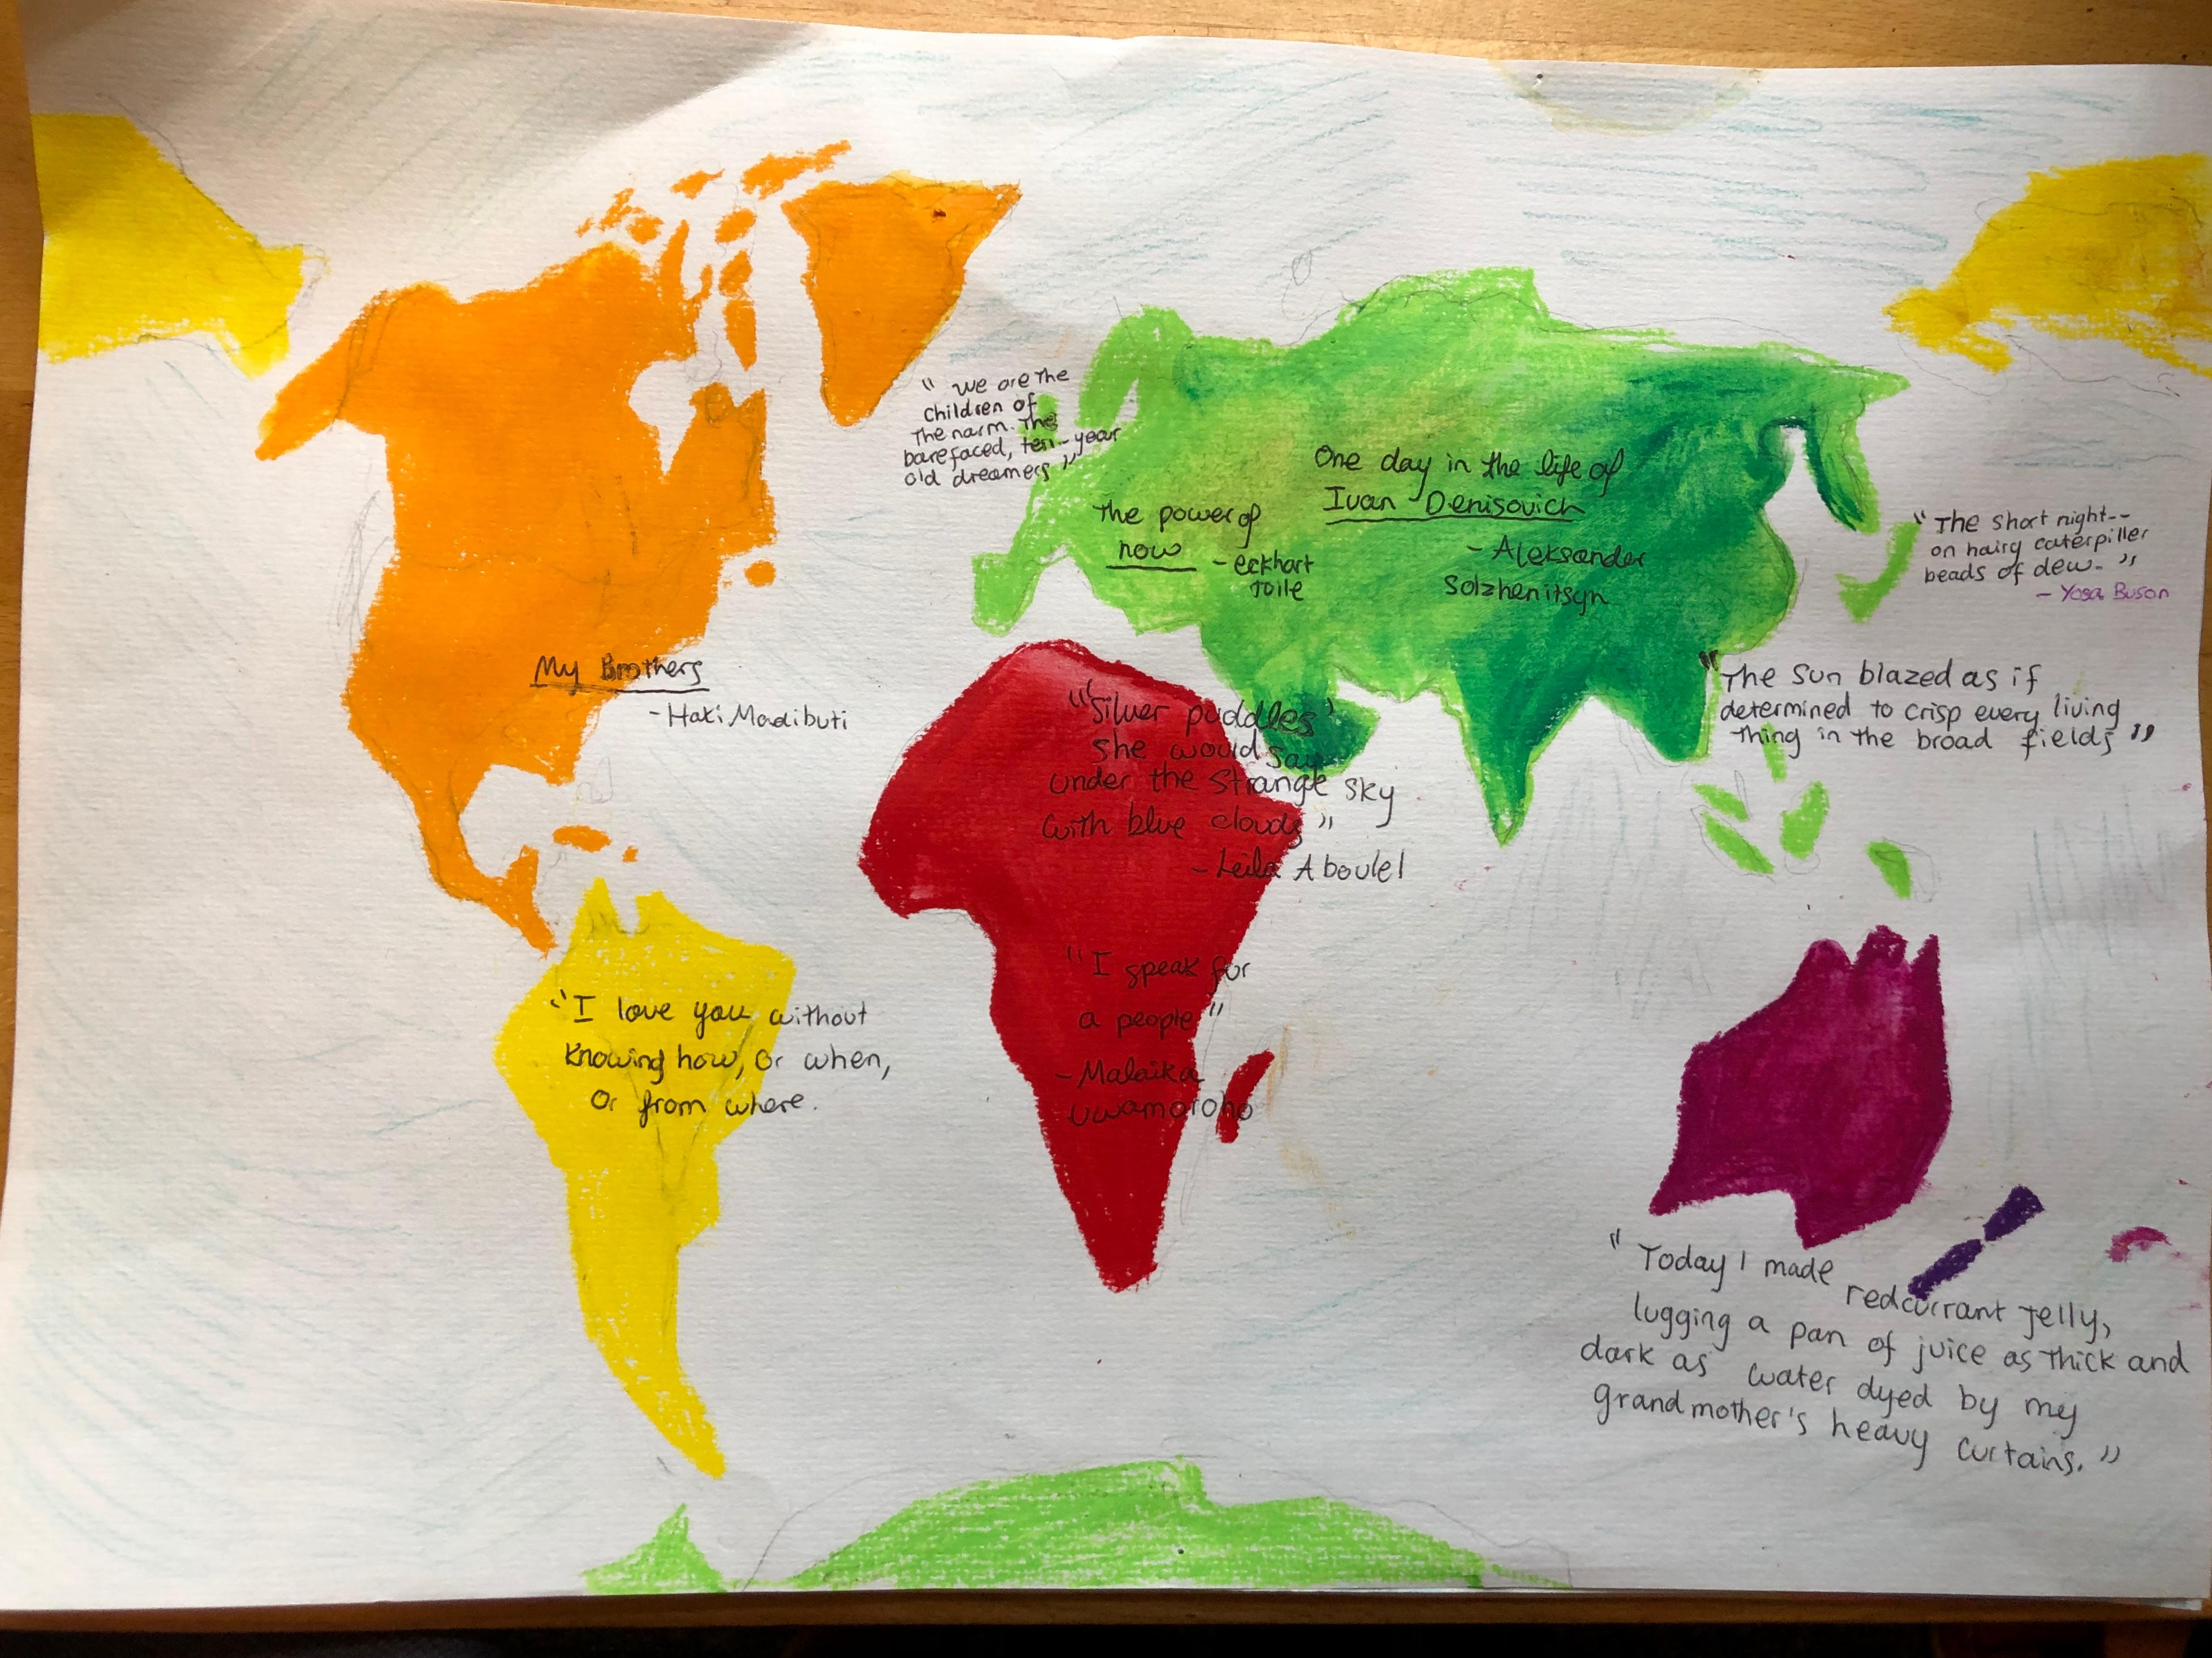 " we are the
children of
the narm. The
barefaced, ten-year
old dreamers "
One day in the life of
Ivan Denisovich
- Aleksander
Solzhenitsyn
The power of
now - eckhart
Tolle
" The short night--
on hairy caterpiller
beads of dew- "
- Yosa Buson
My Brothers
- Haki Madibuti
"Silver puddles'
she would say
under the strange sky
with blue clouds "
- Leila Aboulel
"The sun blazed as if
determined to crisp every living
thing in the broad fields "
"I love you without
Knowing how, or when,
Or from where.
"I speak for
a people "
- Malaika
Uwamoroho
" Today I made
redcurrant jelly,
lugging a pan of juice as thick and
dark as water dyed by my
grandmother's heavy curtains. "